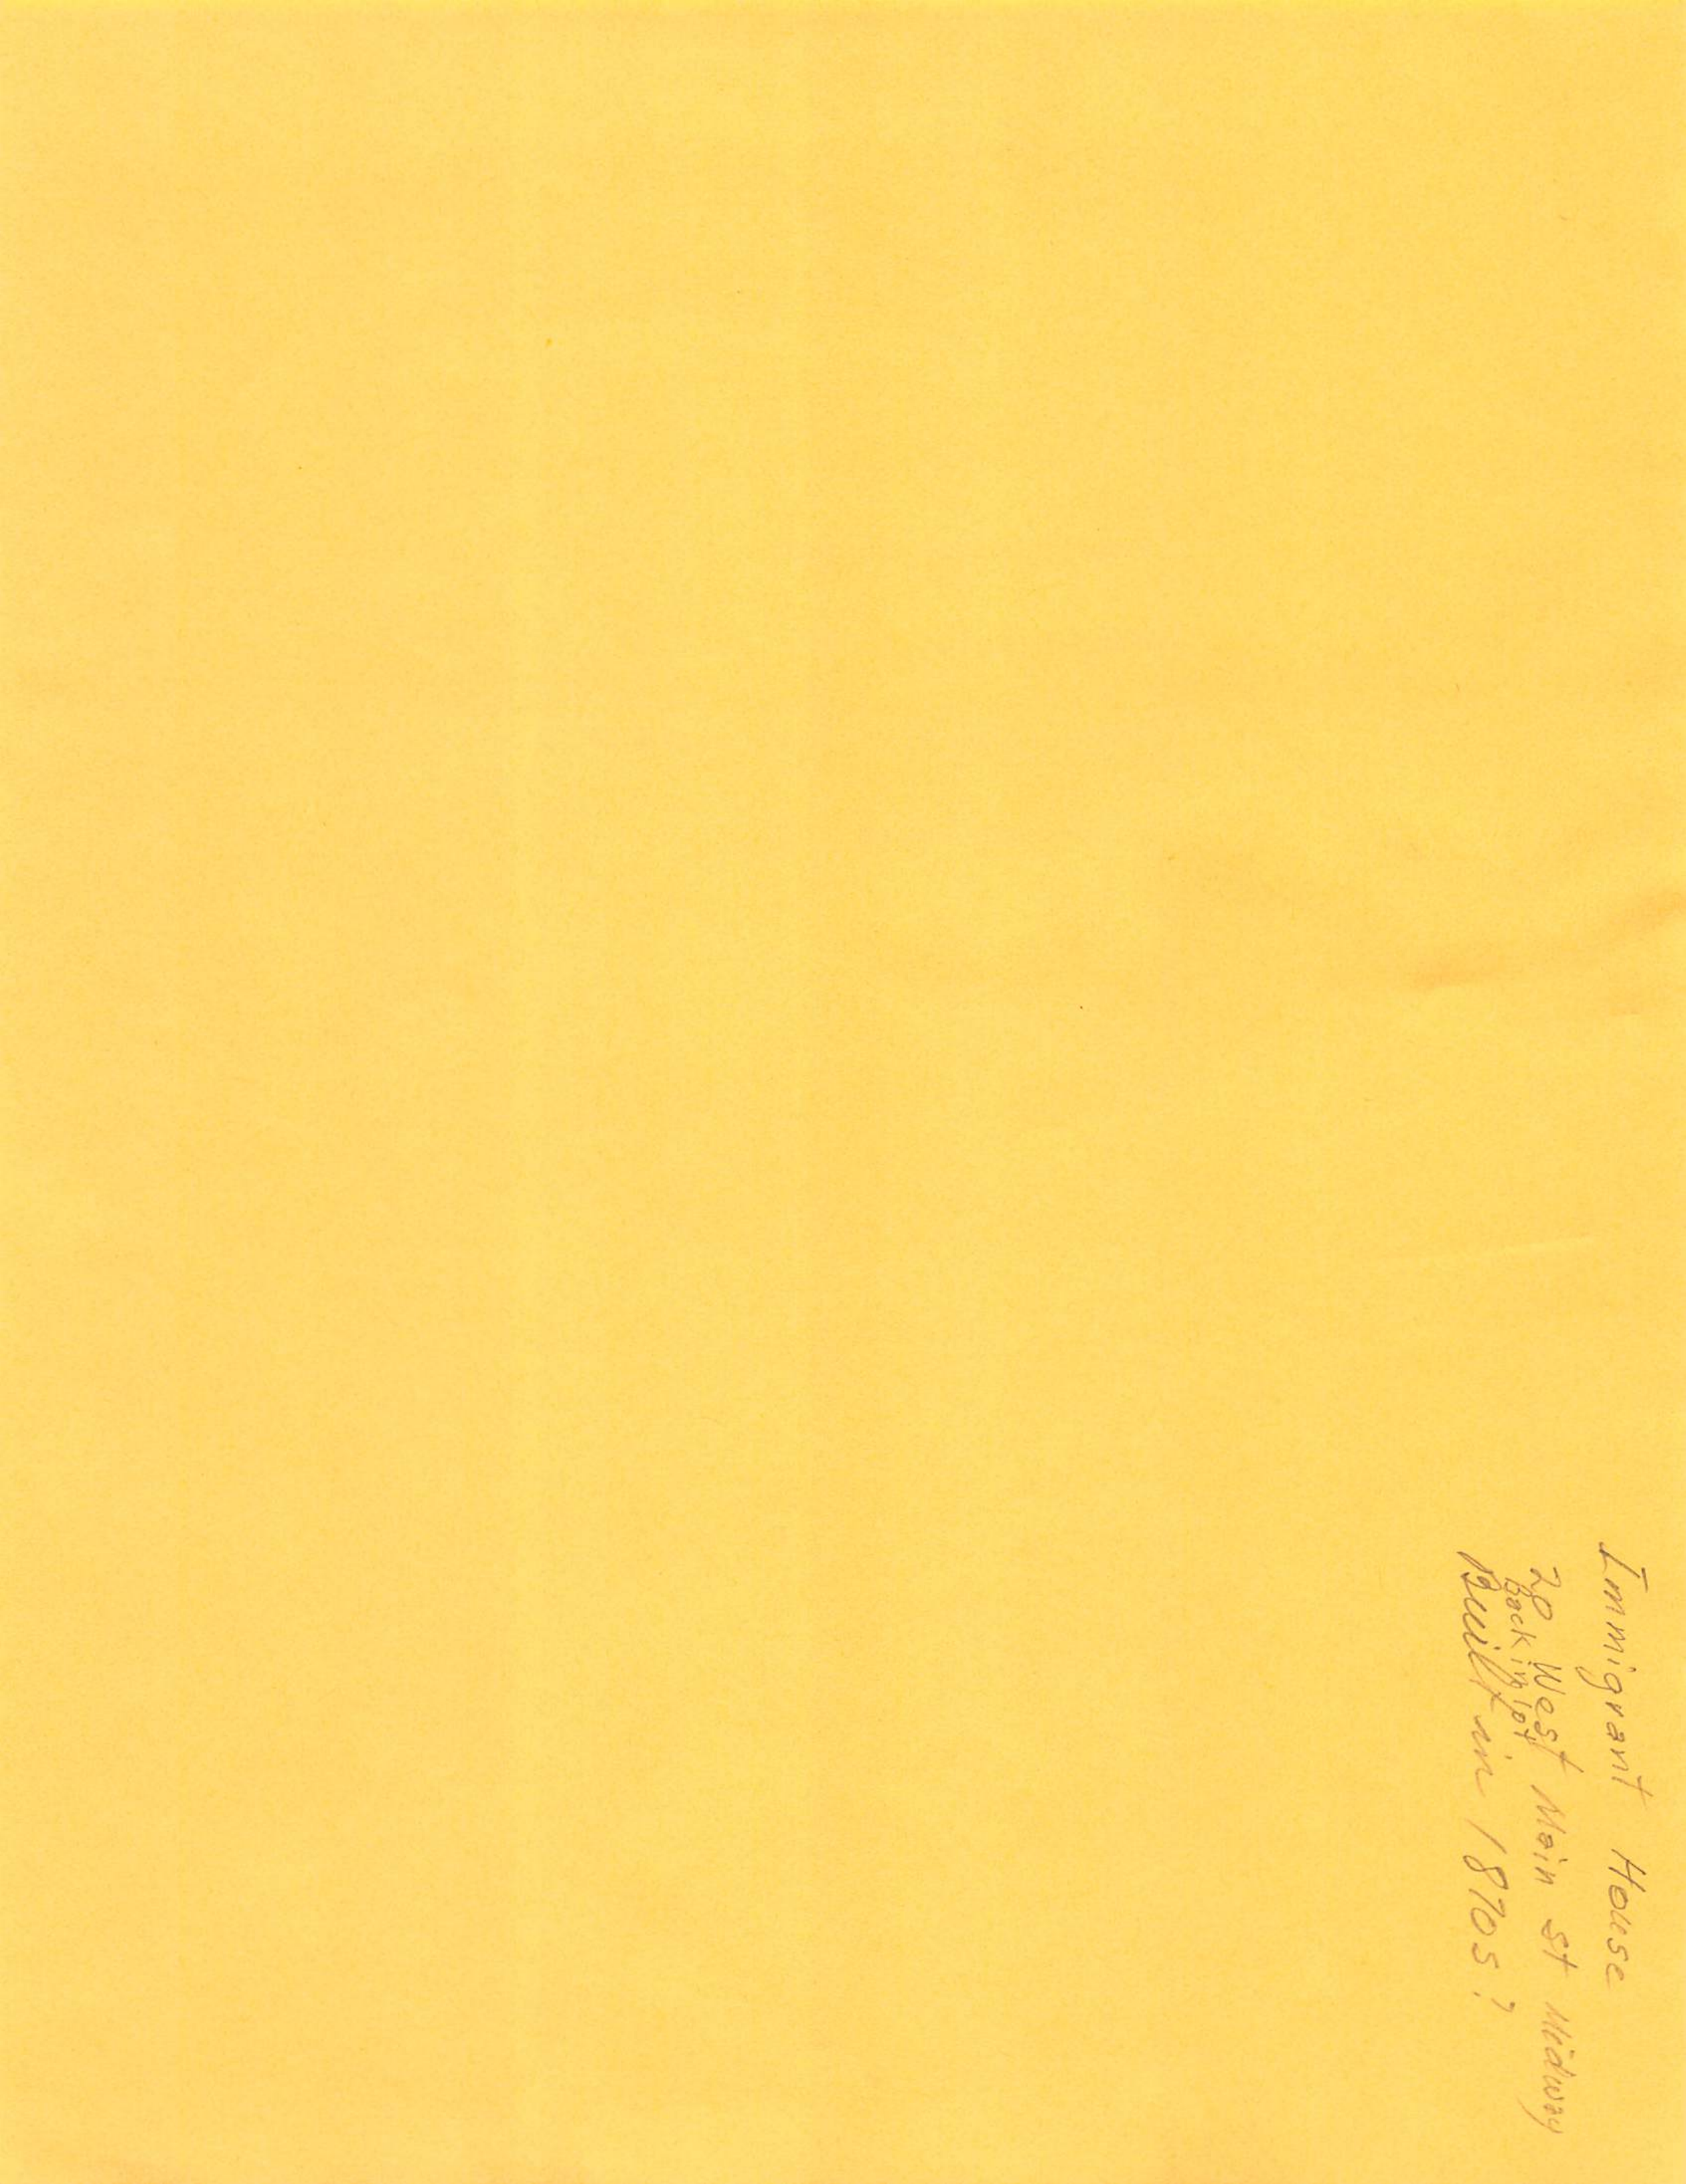 Immigrant House
20 West Main St Midway
Back in lot
Built in 1870s?